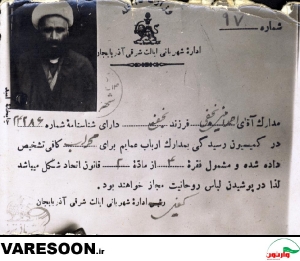 شماره ۹۷
ادارهٔ شهربانی ایالت شرقی آذربایجان
مدارک آقای فرزند دارای شناسنامهٔ شماره
در کمیسیون رسیدگی بمدارک ارباب عمایم برای کافی تشخیص
داده شده و مشمول فقرهٔ از مادهٔ ۲ قانون اتحاد شکل میباشد
لذا در پوشیدن لباس روحانیت مجاز خواهند بود.
رئیس ادارهٔ شهربانی ایالت شرقی آذربایجان
VARESOON.IR
وارثون